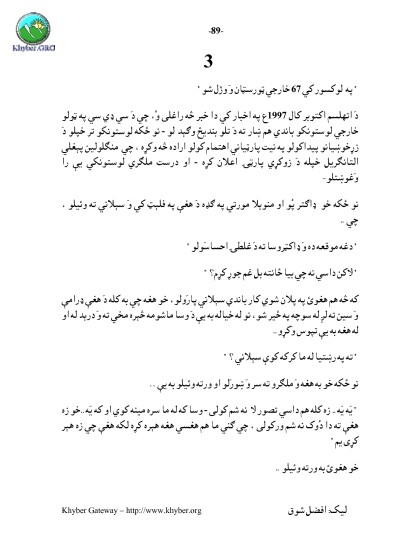 -89-
Khyber.ORG
3
" په لوکسور کي 67 خارجي ټورستان وَوژل شو "
دَ اتهلسم اکتوبر کال 1997ع په اخبار کي دا خبر څه راغلی وُ، چي دَ سي ډي سي په ټولو
خارجي لوستونکو باندي هم ښار ته دَ تلو بنديځ ولګېد لو - نو ځکه لوستونکو تر خپلو دَ
زړه‌خوښيانو پيدا کولو په نيت پارټياني اهتمام کولو اراده څه وکړه ، چي منګلولين پېغلي
التانګريل خپله دَ زوکړي پارټي اعلان کړه - او درست ملګري لوستونکي يې را
وَغوښتلو-
نو ځکه خو ډاګټر پُو او منويلا مورتي په ګډه دَ هغې په فلېټ کي وَ سېلاني ته وئيلو ،
چي ..
" دغه موقعه ده وَ ډاکټروسا ته دَ غلطۍ احسا سَولو "
" لاکن داسي ته چي بيا ځانته بل غم جوړ کړم؟ "
که څه هم هغوئ په پلان شوي کار باندي سېلاني پارَولو ، خو هغه چي به کله دَ هغې ډرامې
وَ سين ته لږ له سوچه په څېر شو ، نو له خياله به يې دَ وسا ماشومه څېره مخي ته وَ درېد له او
له هغه به يې تپوس وکړو..
" ته په رښتيا له ما کرکه کوې سېلاني ؟ "
نو ځکه خو به هغه وَ ملګرو ته سر وَ ښورَلو او ورته وئيلو به يې ..
" يَه يَه .. زه کله هم داسي تصور لا نه شم کولی - وسا که له ما سره مينه کوي او که يَه ..خو زه
هغې ته دا دُوک نه شم ورکولی ، چي ګني ما هم هغسي هغه هېره کړه لکه هغې چي زه هېر
کړی يم "
خو هغوئ به ورته وئيلو ..
Khyber Gateway – http://www.khyber.org
ليک: افضل شوق